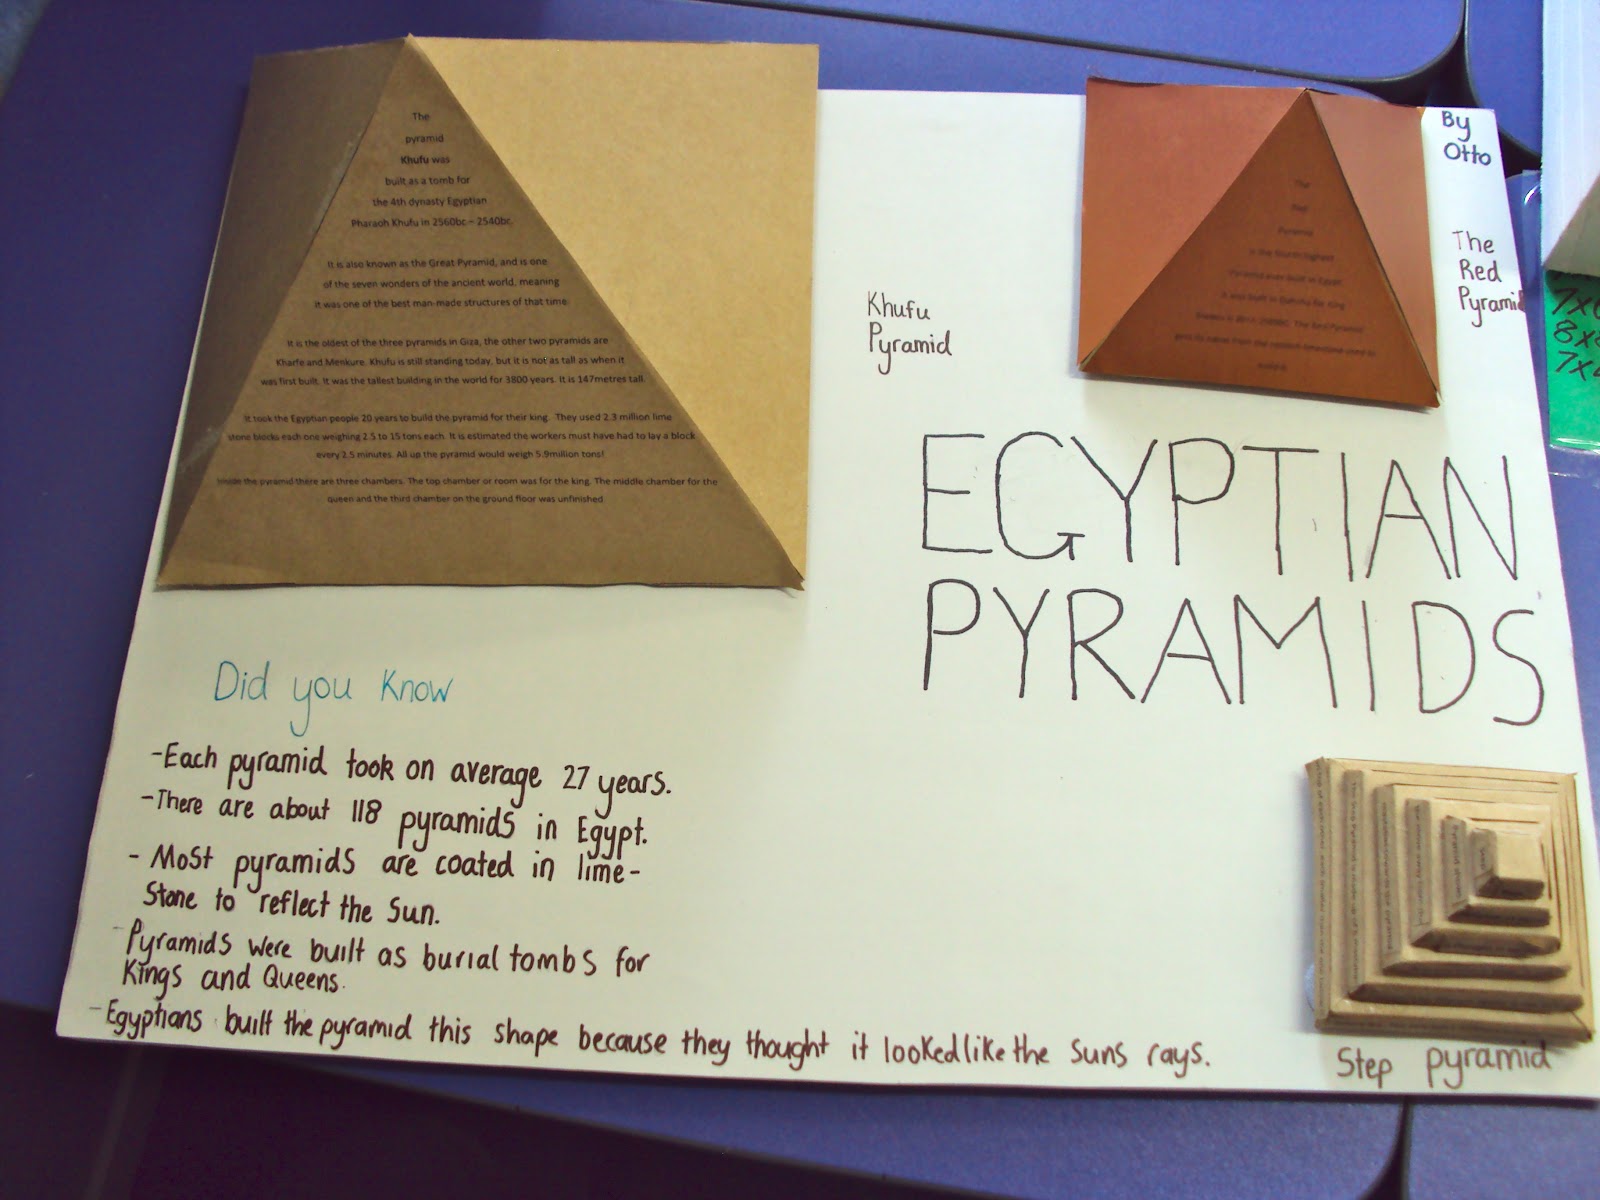 The
pyramid
Khufu was
built as a tomb for
the 4th dynasty Egyptian
Pharaoh Khufu in 2560bc – 2540bc.
It is also known as the Great Pyramid, and is one
of the seven wonders of the ancient world, meaning
it was one of the best man-made structures of that time.
It is the oldest of the three pyramids in Giza, the other two pyramids are
Kharfe and Menkure. Khufu is still standing today, but it is not as tall as when it
was first built. It was the tallest building in the world for 3800 years. It is 147metres tall.
It took the Egyptian people 20 years to build the pyramid for their king. They used 2.3 million lime
stone blocks each one weighing 2.5 to 15 tons each. It is estimated the workers must have had to lay a block
every 2.5 minutes. All up the pyramid would weigh 5.9million tons!
Inside the pyramid there are three chambers. The top chamber or room was for the king. The middle chamber for the
queen and the third chamber on the ground floor was unfinished
Khufu
Pyramid
The
Red
Pyramid
is the fourth highest
Pyramid ever built in Egypt.
By
Otto
The
Red
Pyramid
7x
8x
7x
EGYPTIAN
PYRAMIDS
Did you Know
-Each pyramid took on average 27 years.
-There are about 118 pyramids in Egypt.
- Most pyramids are coated in lime-
Stone to reflect the Sun.
-Pyramids were built as burial tombs for
Kings and Queens.
-Egyptians built the pyramid this shape because they thought it looked like the suns rays.
Step pyramid